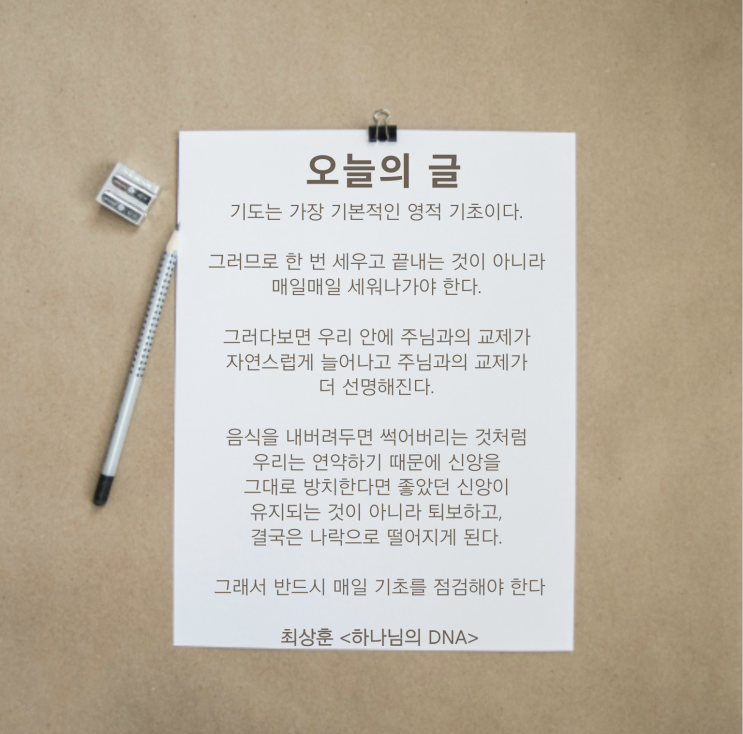 오늘의 글
기도는 가장 기본적인 영적 기초이다.
그러므로 한 번 세우고 끝내는 것이 아니라
매일매일 세워나가야 한다.
그러다보면 우리 안에 주님과의 교제가
자연스럽게 늘어나고 주님과의 교제가
더 선명해진다.
음식을 내버려두면 썩어버리는 것처럼
우리는 연약하기 때문에 신앙을
그대로 방치한다면 좋았던 신앙이
유지되는 것이 아니라 퇴보하고,
결국은 나락으로 떨어지게 된다.
그래서 반드시 매일 기초를 점검해야 한다
최상훈 <하나님의 DNA>